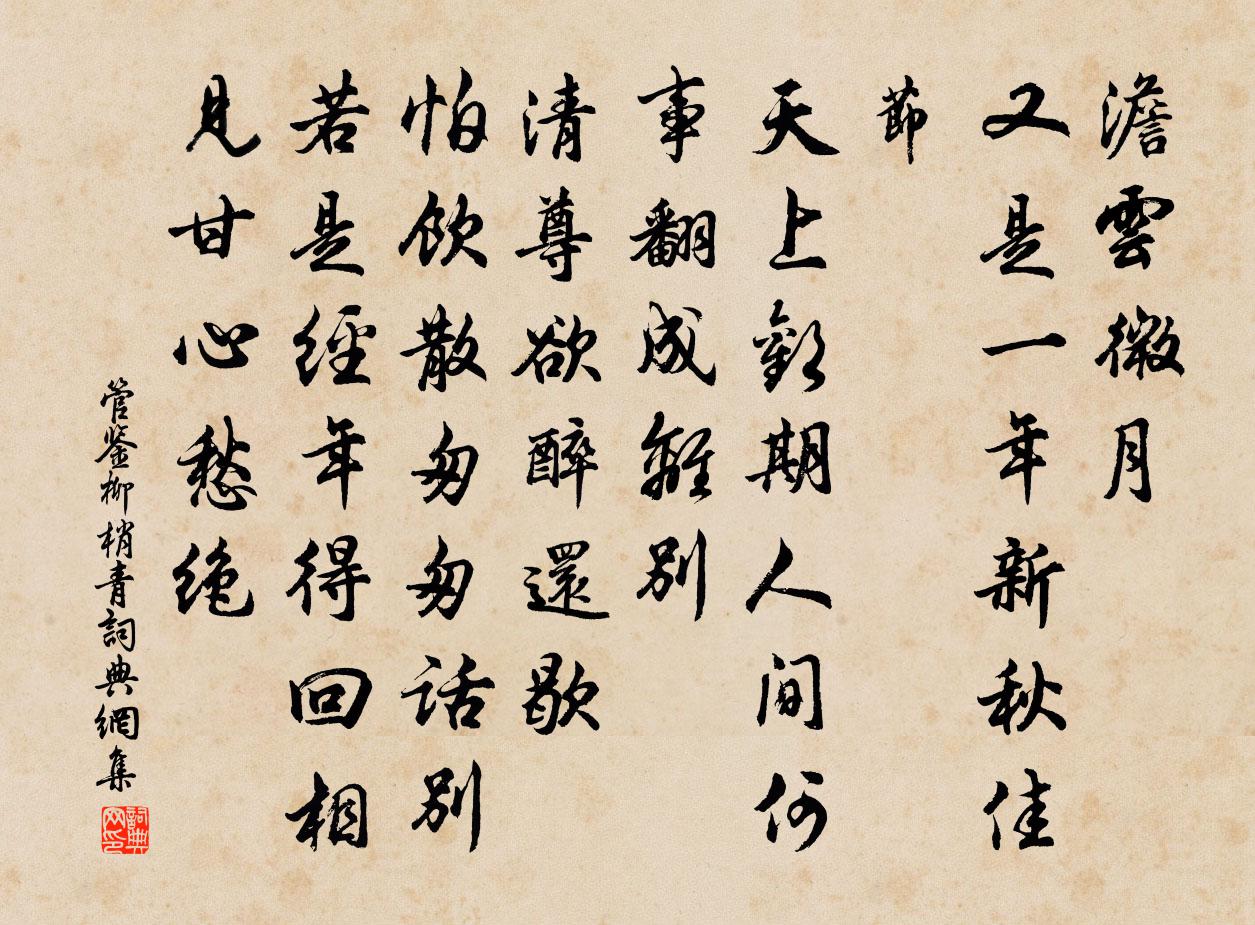 澹雲微月
又是一年新秋佳
節
天上歡期人間何
事翻成離別
清尊欲醉還歇
怕飲散匆匆話別
若是經年得回相
見甘心愁絶
管鉴柳梢青詞典網集
詞典网印